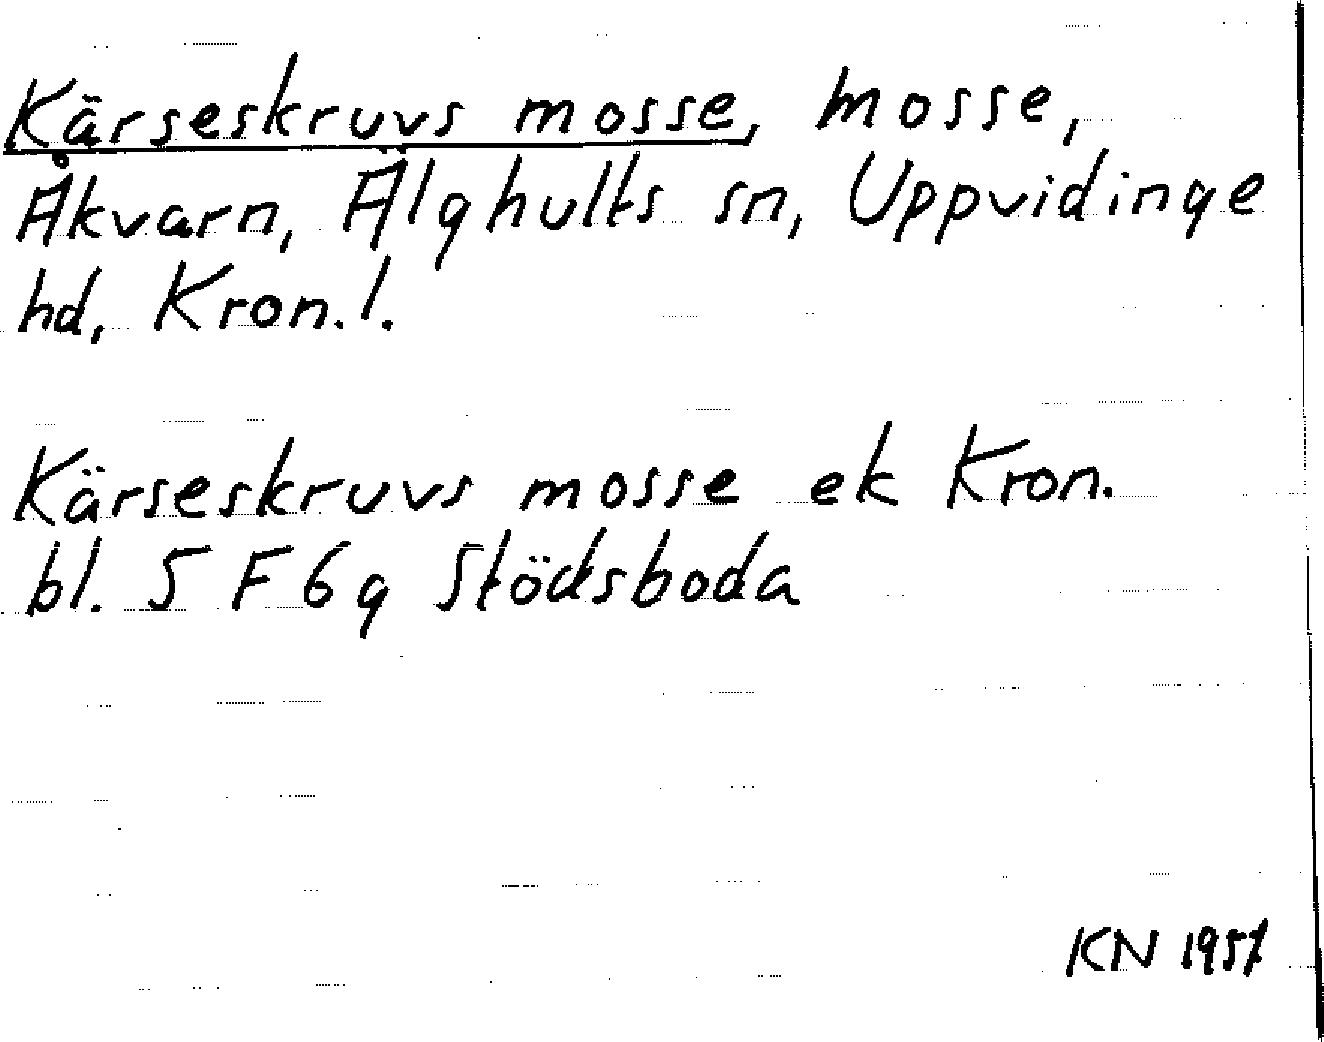 Kärseskruvs mosse, mosse,
Åkvarn, Älghults sn, Uppvidinge
hd, Kron.l.
Kärseskruvs mosse ek Kron.
bl. 5 F 6 g Stödsboda
KN 1957